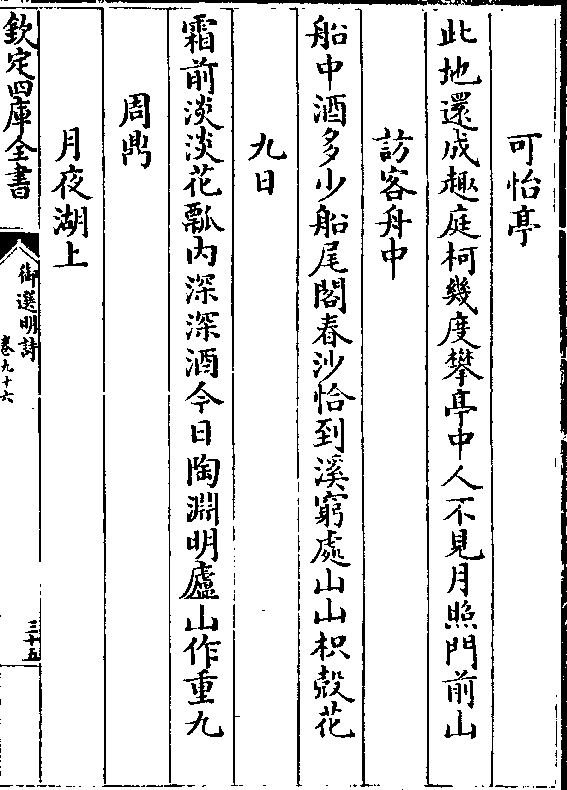 可怡亭
此地還成趣庭柯幾度攀亭中人不見月照門前山
訪客舟中
船中酒多少船尾閣春沙恰到溪窮處山山枳殼花
九日
霜前淡淡花瓢内深深酒今日陶淵明廬山作重九
周鼎
月夜湖上
欽定四庫全書
御選明詩
卷九十六
三十五